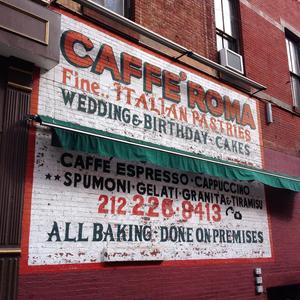 CAFFE' ROMA
Fine.. ITALIAN PASTRIES
WEDDING & BIRTHDAY · CAKES
CAFFÉ ESPRESSO · CAPPUCCINO
**SPUMONI · GELATI · GRANITA & TIRAMISU
212 226·8413
ALL BAKING · DONE ON PREMISES